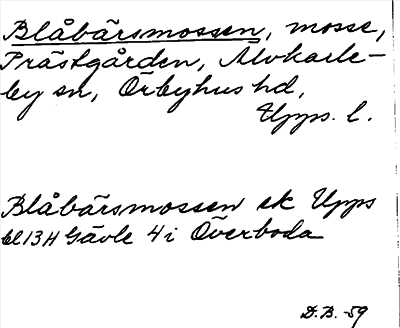 Blåbärsmossen, mosse,
Prästgården, Älvkarle-
by sn, Örbyhus hd,
Upps. l.
Blåbärsmossen ek Upps
bl 13H Gävle 4 i Överboda
D.B. -59